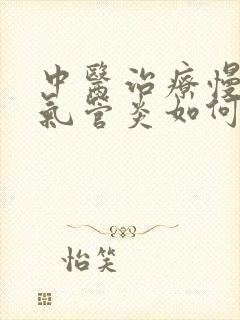 中醫治療慢
氣管炎如何
怡笑